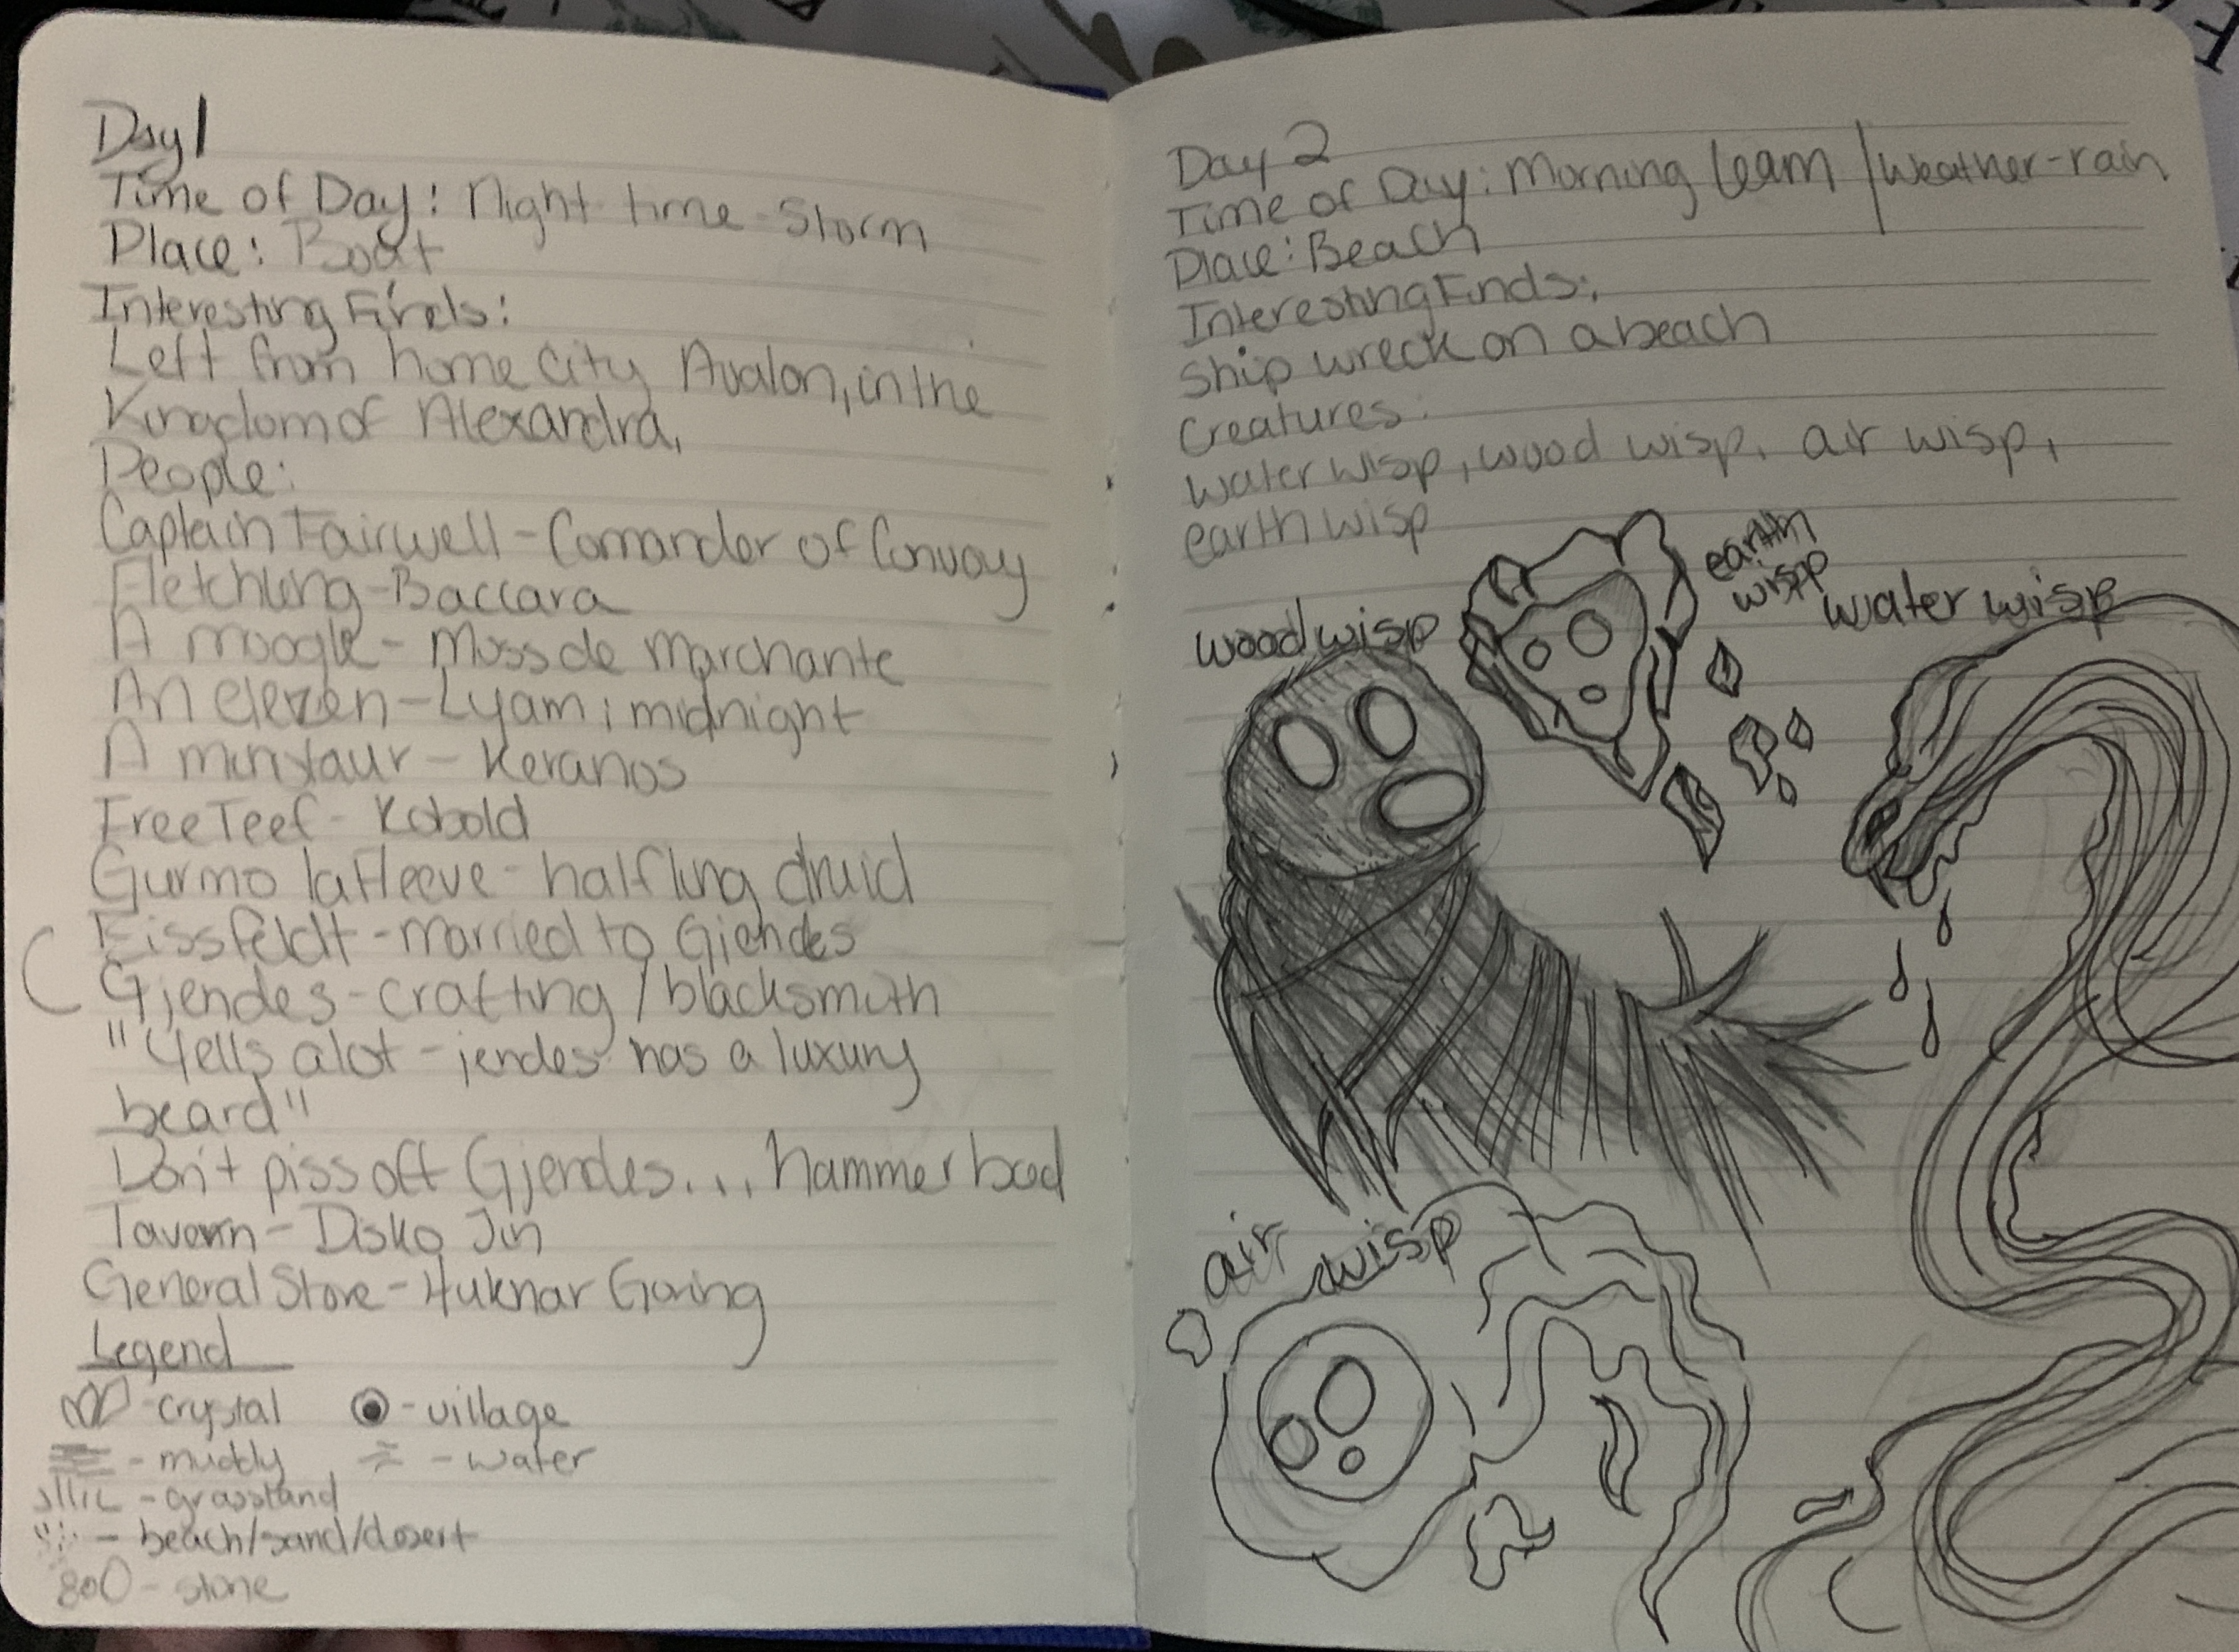 Day 1
Time of Day: Night time - Storm
Place: Boat
Interesting Finds:
Left from home city Avalon, in the
Kingdom of Alexandra,
People:
Captain Fairwell - Comander of Convoy
Fletchling - Baccara
A moogle - Moss de Marchante
An elezen - Lyam; midnight
A minotaur - Keranos
Free Teef - Kobold
Gurmo lafleeve - halfling druid
Eissfeldt - married to Gjendes
Gjendes - crafting / blacksmith
"Yells alot - jendes has a luxury
beard"
Don't piss off Gjendes... hammer bad
Tavern - Disko Jin
General Store - Huknar Goring
Legend
- crystal - village
- muddy - water
- grassland
- beach/sand/desert
- stone
Day 2
Time of Day: Morning 6am / Weather - rain
Place: Beach
Interesting Finds:
Ship wreck on a beach
Creatures:
water wisp, wood wisp, air wisp,
earth wisp
earth
wisp
wood wisp
water wisp
air wisp